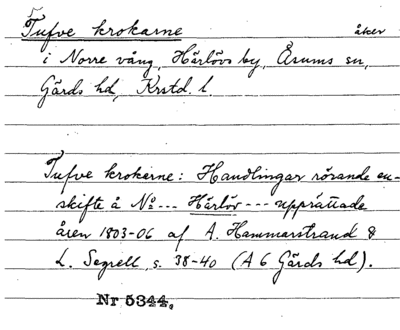 Tufve krokarne åker
i Norre vång, Härlövs by, Årums sn,
Gärds hd, Krstd. l.
Tufve krokarne: Handlingar rörande en-
skifte å No --- Härlöv --- upprättade
åren 1803-06 af A. Hammarstrand &
L. Segrell, s. 38-40 (A 6 Gärds hd).
Nr 5344.